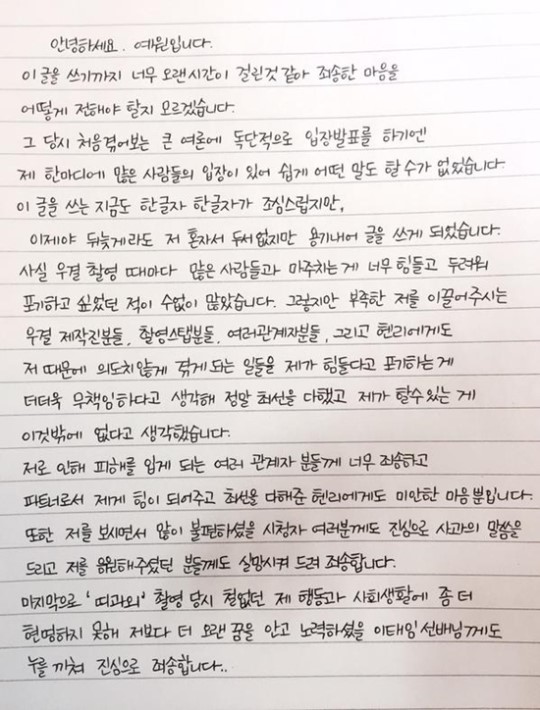 안녕하세요. 예원입니다.
이 글을 쓰기까지 너무 오랜시간이 걸린것 같아 죄송한 마음을
어떻게 전해야 할지 모르겠습니다.
그 당시 처음겪어보는 큰 여론에 독단적으로 입장발표를 하기엔
제 한마디에 많은 사람들의 입장이 있어 쉽게 어떤 말도 할 수가 없었습니다.
이 글을 쓰는 지금도 한글자 한글자가 조심스럽지만,
이제야 뒤늦게라도 저 혼자서 두서없지만 용기내어 글을 쓰게 되었습니다.
사실 우결 촬영 때마다 많은 사람들과 마주치는게 너무 힘들고 두려워
포기하고 싶었던 적이 수없이 많았습니다. 그렇지만 부족한 저를 이끌어주시는
우결 제작진분들, 촬영스탭분들, 여러관계자분들, 그리고 헨리에게도
저 때문에 의도치않게 겪게 되는 일들을 제가 힘들다고 포기하는게
더더욱 무책임하다고 생각해 정말 최선을 다했고 제가 할수있는 게
이것밖에 없다고 생각했습니다.
저로 인해 피해를 입게 되는 여러 관계자 분들께 너무 죄송하고
파트너로서 제게 힘이 되어주고 최선을 다해준 헨리에게도 미안한 마음뿐입니다.
또한 저를 보시면서 많이 불편하셨을 시청자 여러분께도 진심으로 사과의 말씀을
드리고 저를 응원해주셨던 분들께도 실망시켜 드려 죄송합니다.
마지막으로 '띠과외' 촬영 당시 철없던 제 행동과 사회생활에 좀 더
현명하지 못해 저보다 더 오랜 꿈을 안고 노력하셨을 이태임 선배님께도
누를 끼쳐 진심으로 죄송합니다..